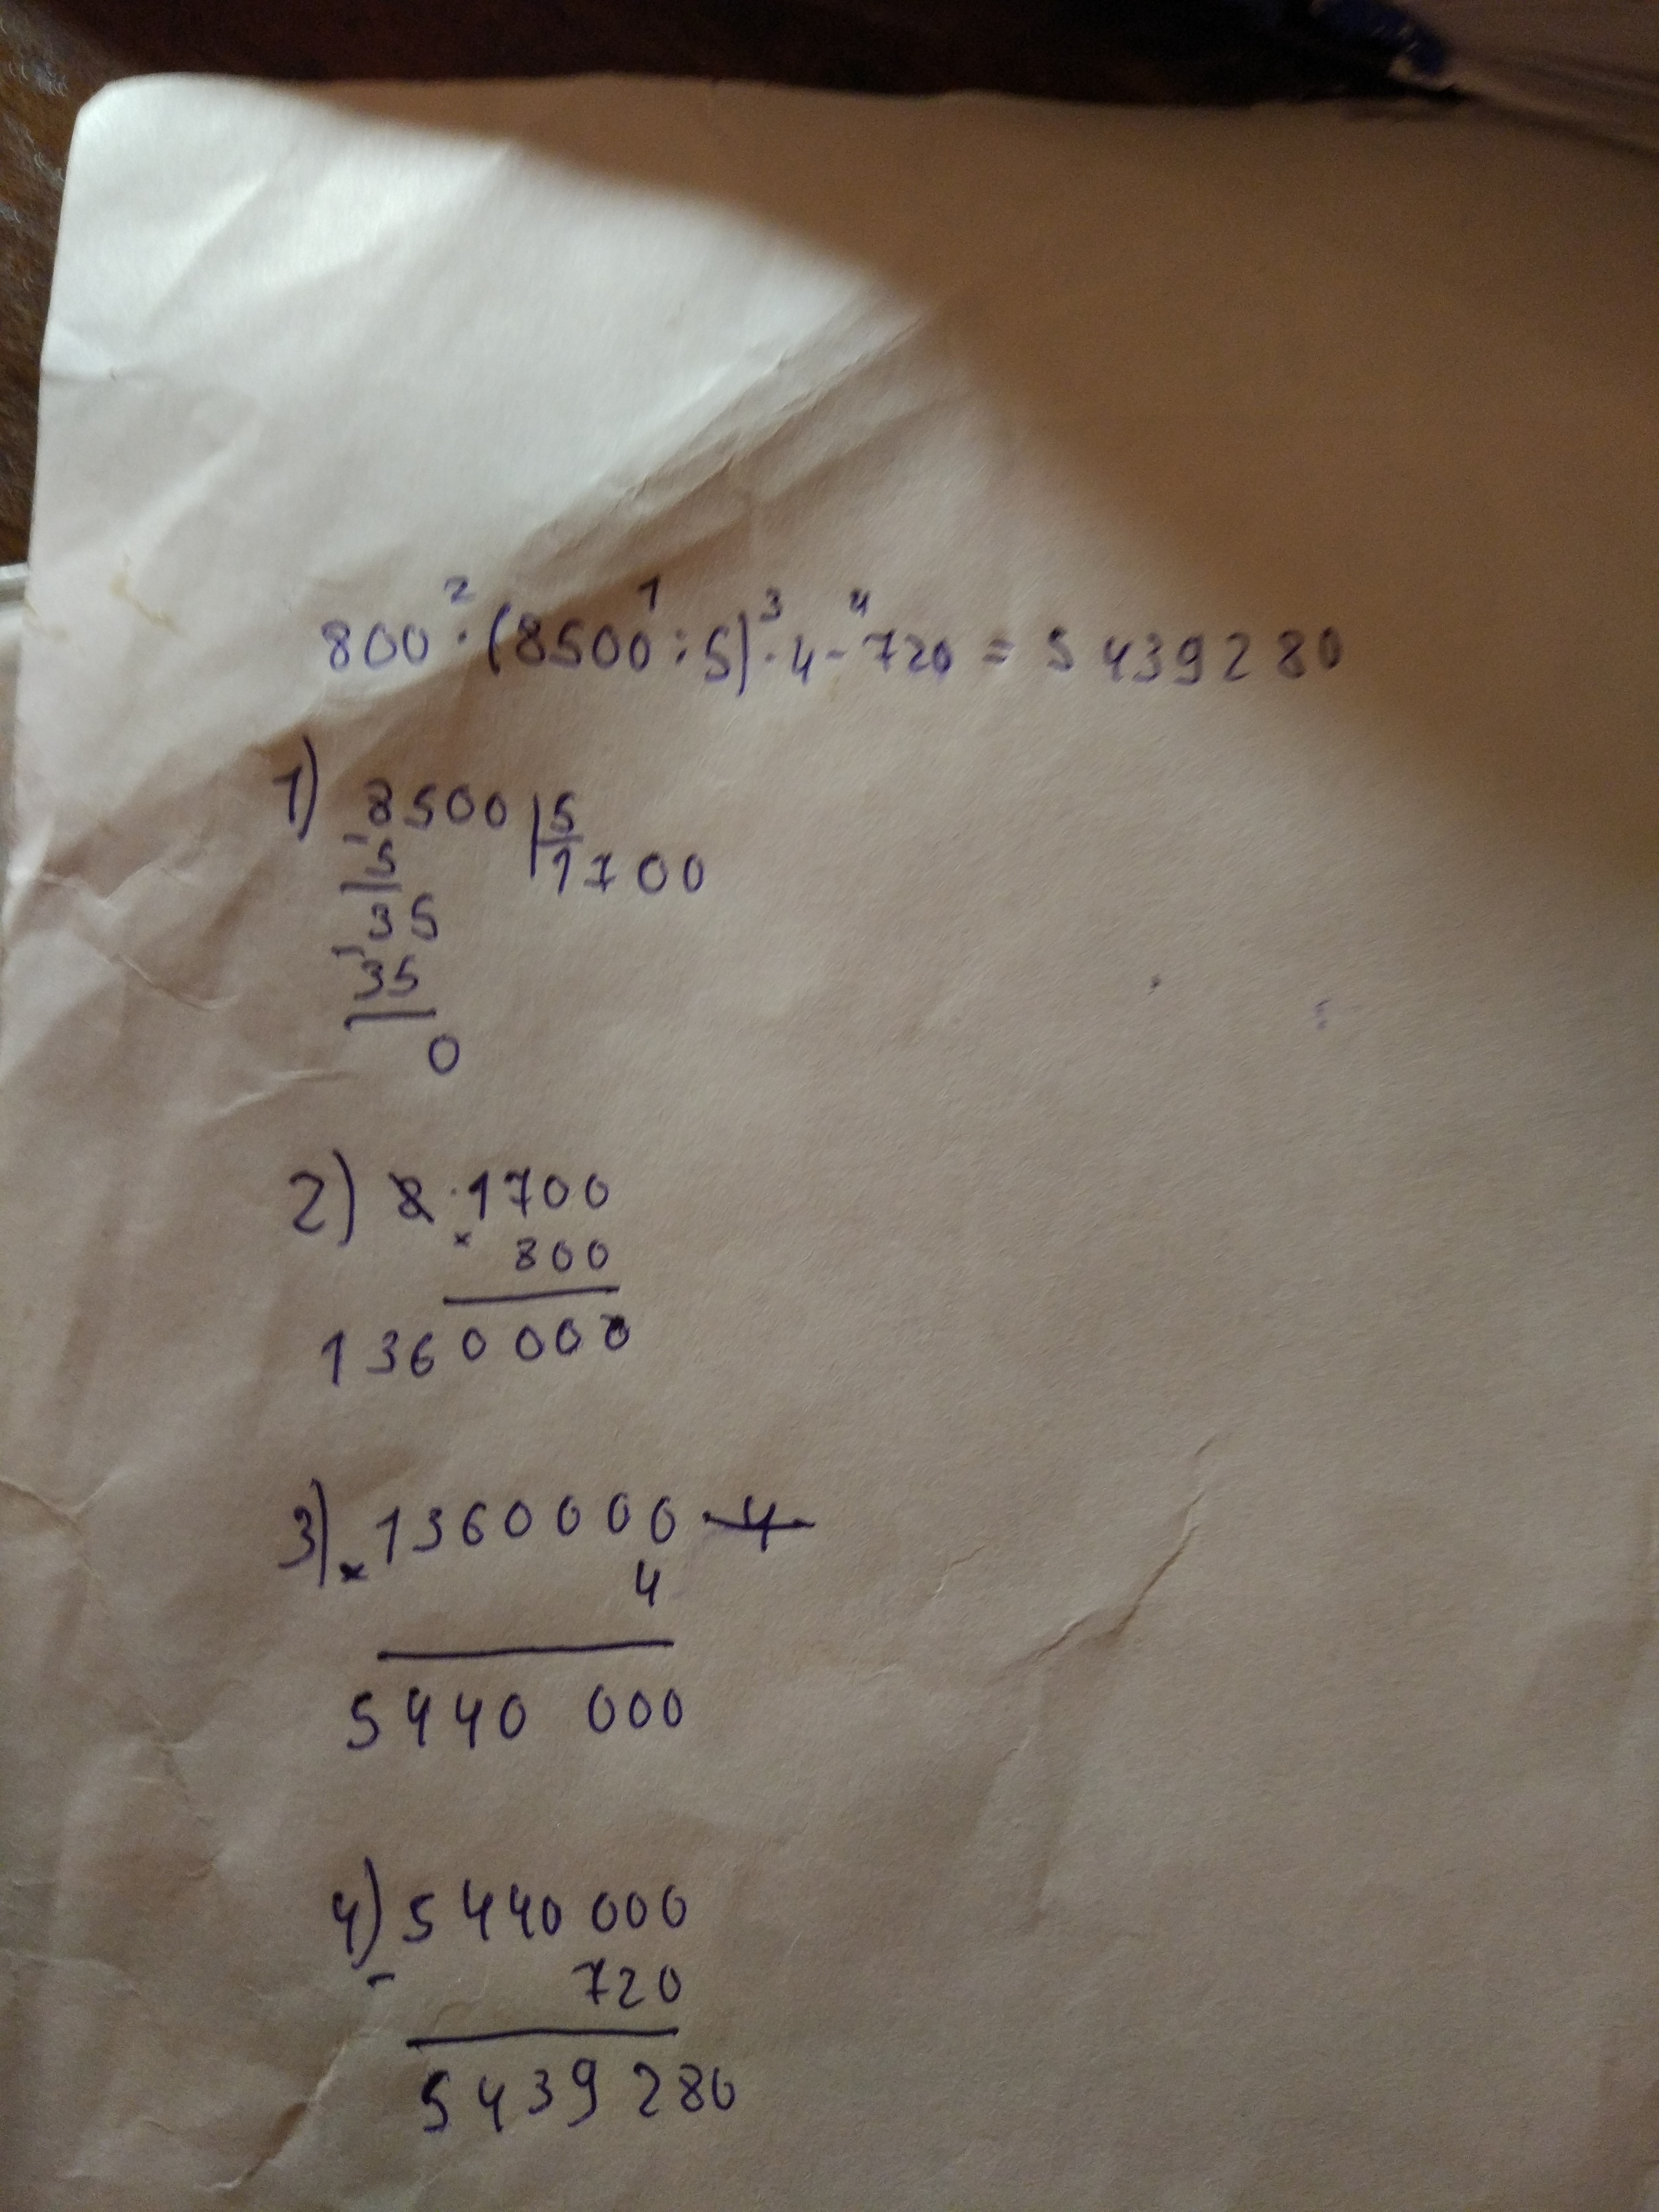 2 1 3 4
800 · (8500 : 5) · 4 - 720 = 5 439 280
1) 8500 | 5
- 5 1700
35
- 35
0
2) 1700
× 800
1360 000
3) × 1360000
4
5440 000
4) 5 440 000
- 720
5 439 280